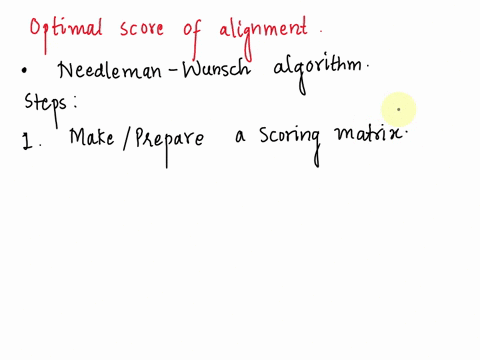 Optimal score of alignment.
• Needleman-Wunsch algorithm.
Steps:
1. Make/Prepare a Scoring matrix.